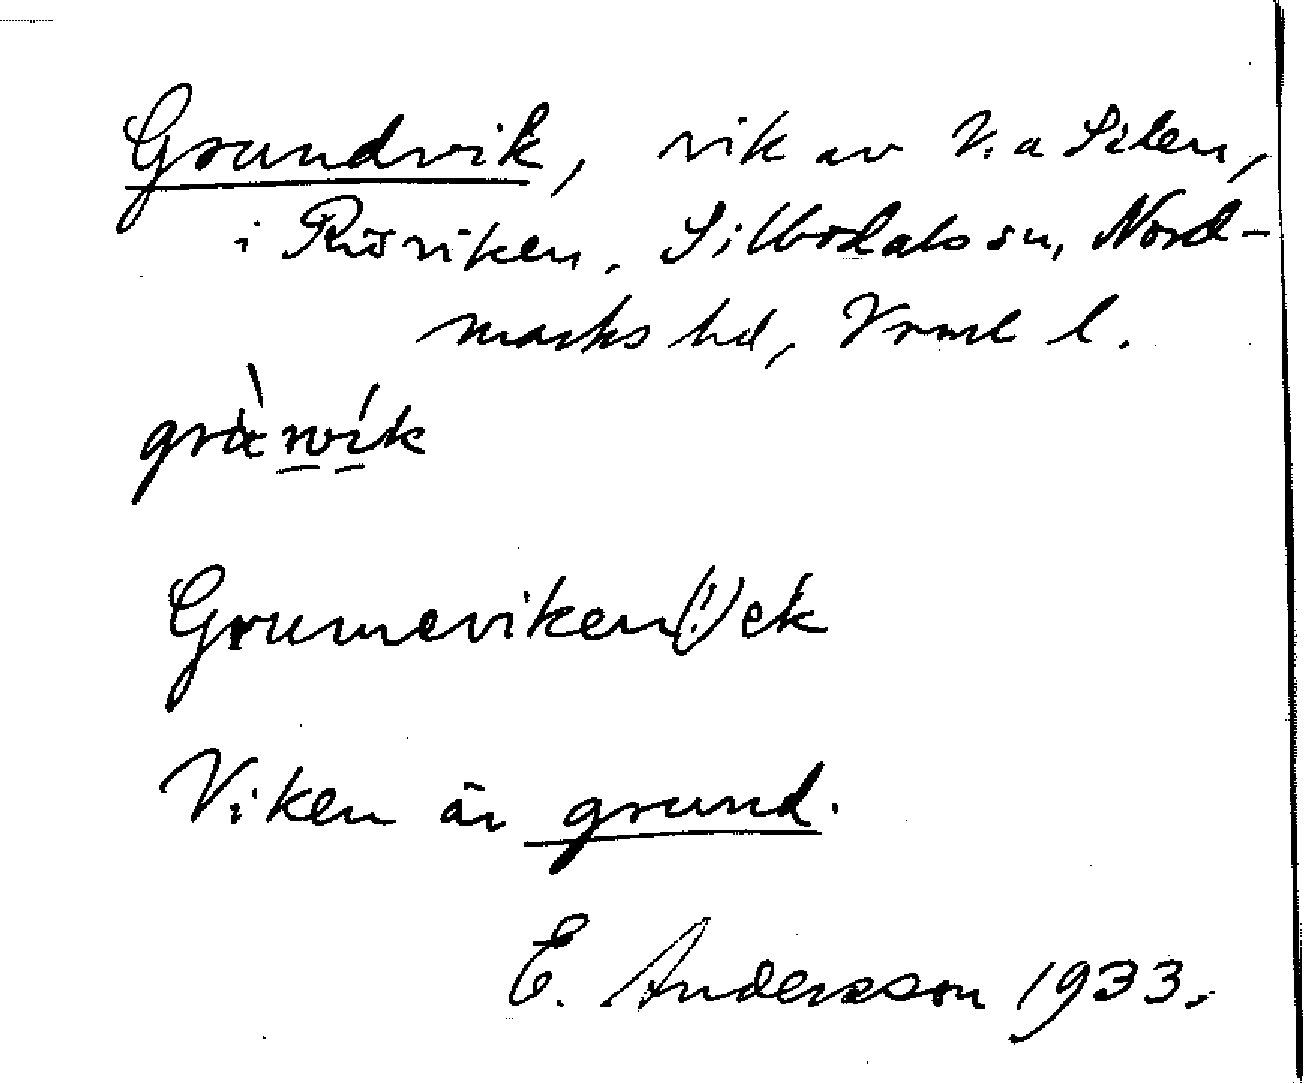 Grundvik, vik av V:a Silen,
i Rösviken, Silbodals sn, Nord-
marks hd, Vrml l.
Grumeviken (!) ek
Viken är grund.
E. Andersson 1933.